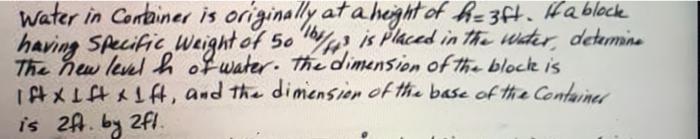 Water in Container is originally at a height of h=3ft. If a block
having Specific Weight of 50 lb/ft³ is Placed in the water, determine
The new level h of water. The dimension of the block is
1ft x 1ft x 1ft, and the dimension of the base of the Container
is 2ft. by 2ft.